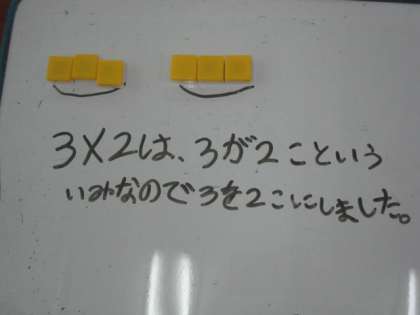 3×2は、3が2こという
いみなので3を2こにしました。